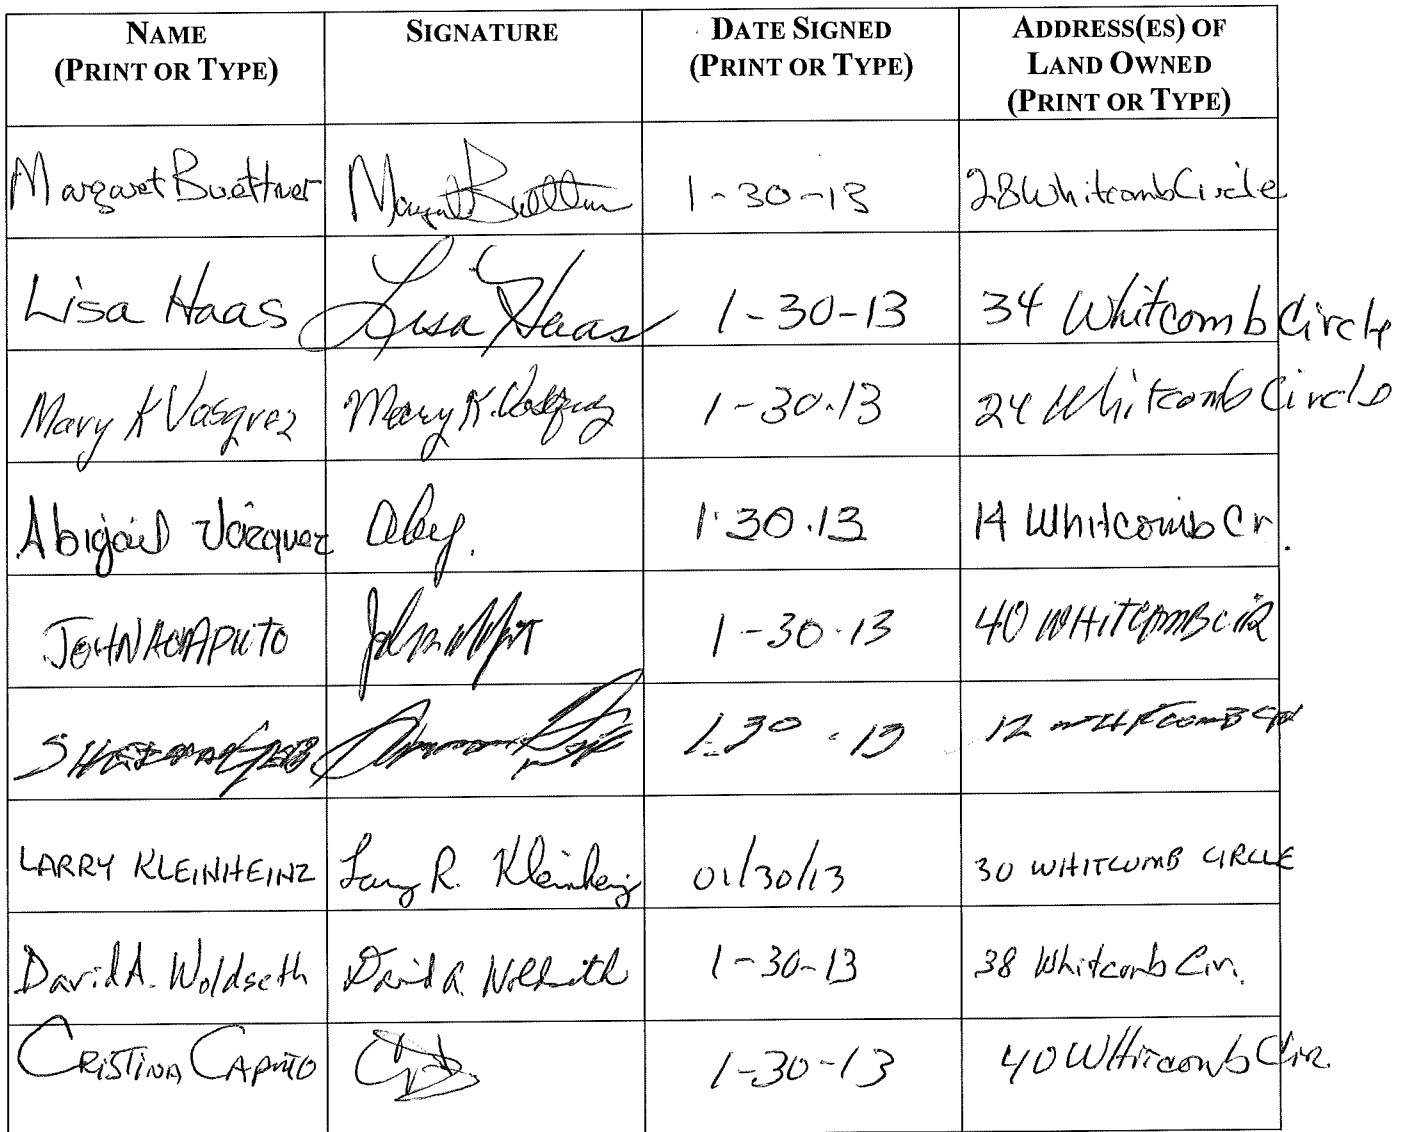 NAME (PRINT OR TYPE) SIGNATURE DATE SIGNED (PRINT OR TYPE) ADDRESS(ES) OF LAND OWNED (PRINT OR TYPE)
Margaret Buettner Margaret Buettner 1-30-13 28 Whitcomb Circle
Lisa Haas Lisa Haas 1-30-13 34 Whitcomb Circle
Mary K Vasquez Mary K. Vasquez 1-30.13 24 Whitcomb Circle
Abigail Vazquez Abby. 1.30.13 14 Whitcomb Cr.
JOHN CAPUTO 1-30.13 40 WHITCOMB CIR
1.30.13 12
LARRY KLEINHEINZ Larry R. Kleinheinz 01/30/13 30 WHITCOMB CIRCLE
David A. Woldseth David A. Woldseth 1-30-13 38 Whitcomb Cir.
CRISTINA CAPUTO 1-30-13 40 Whitcomb Cir.